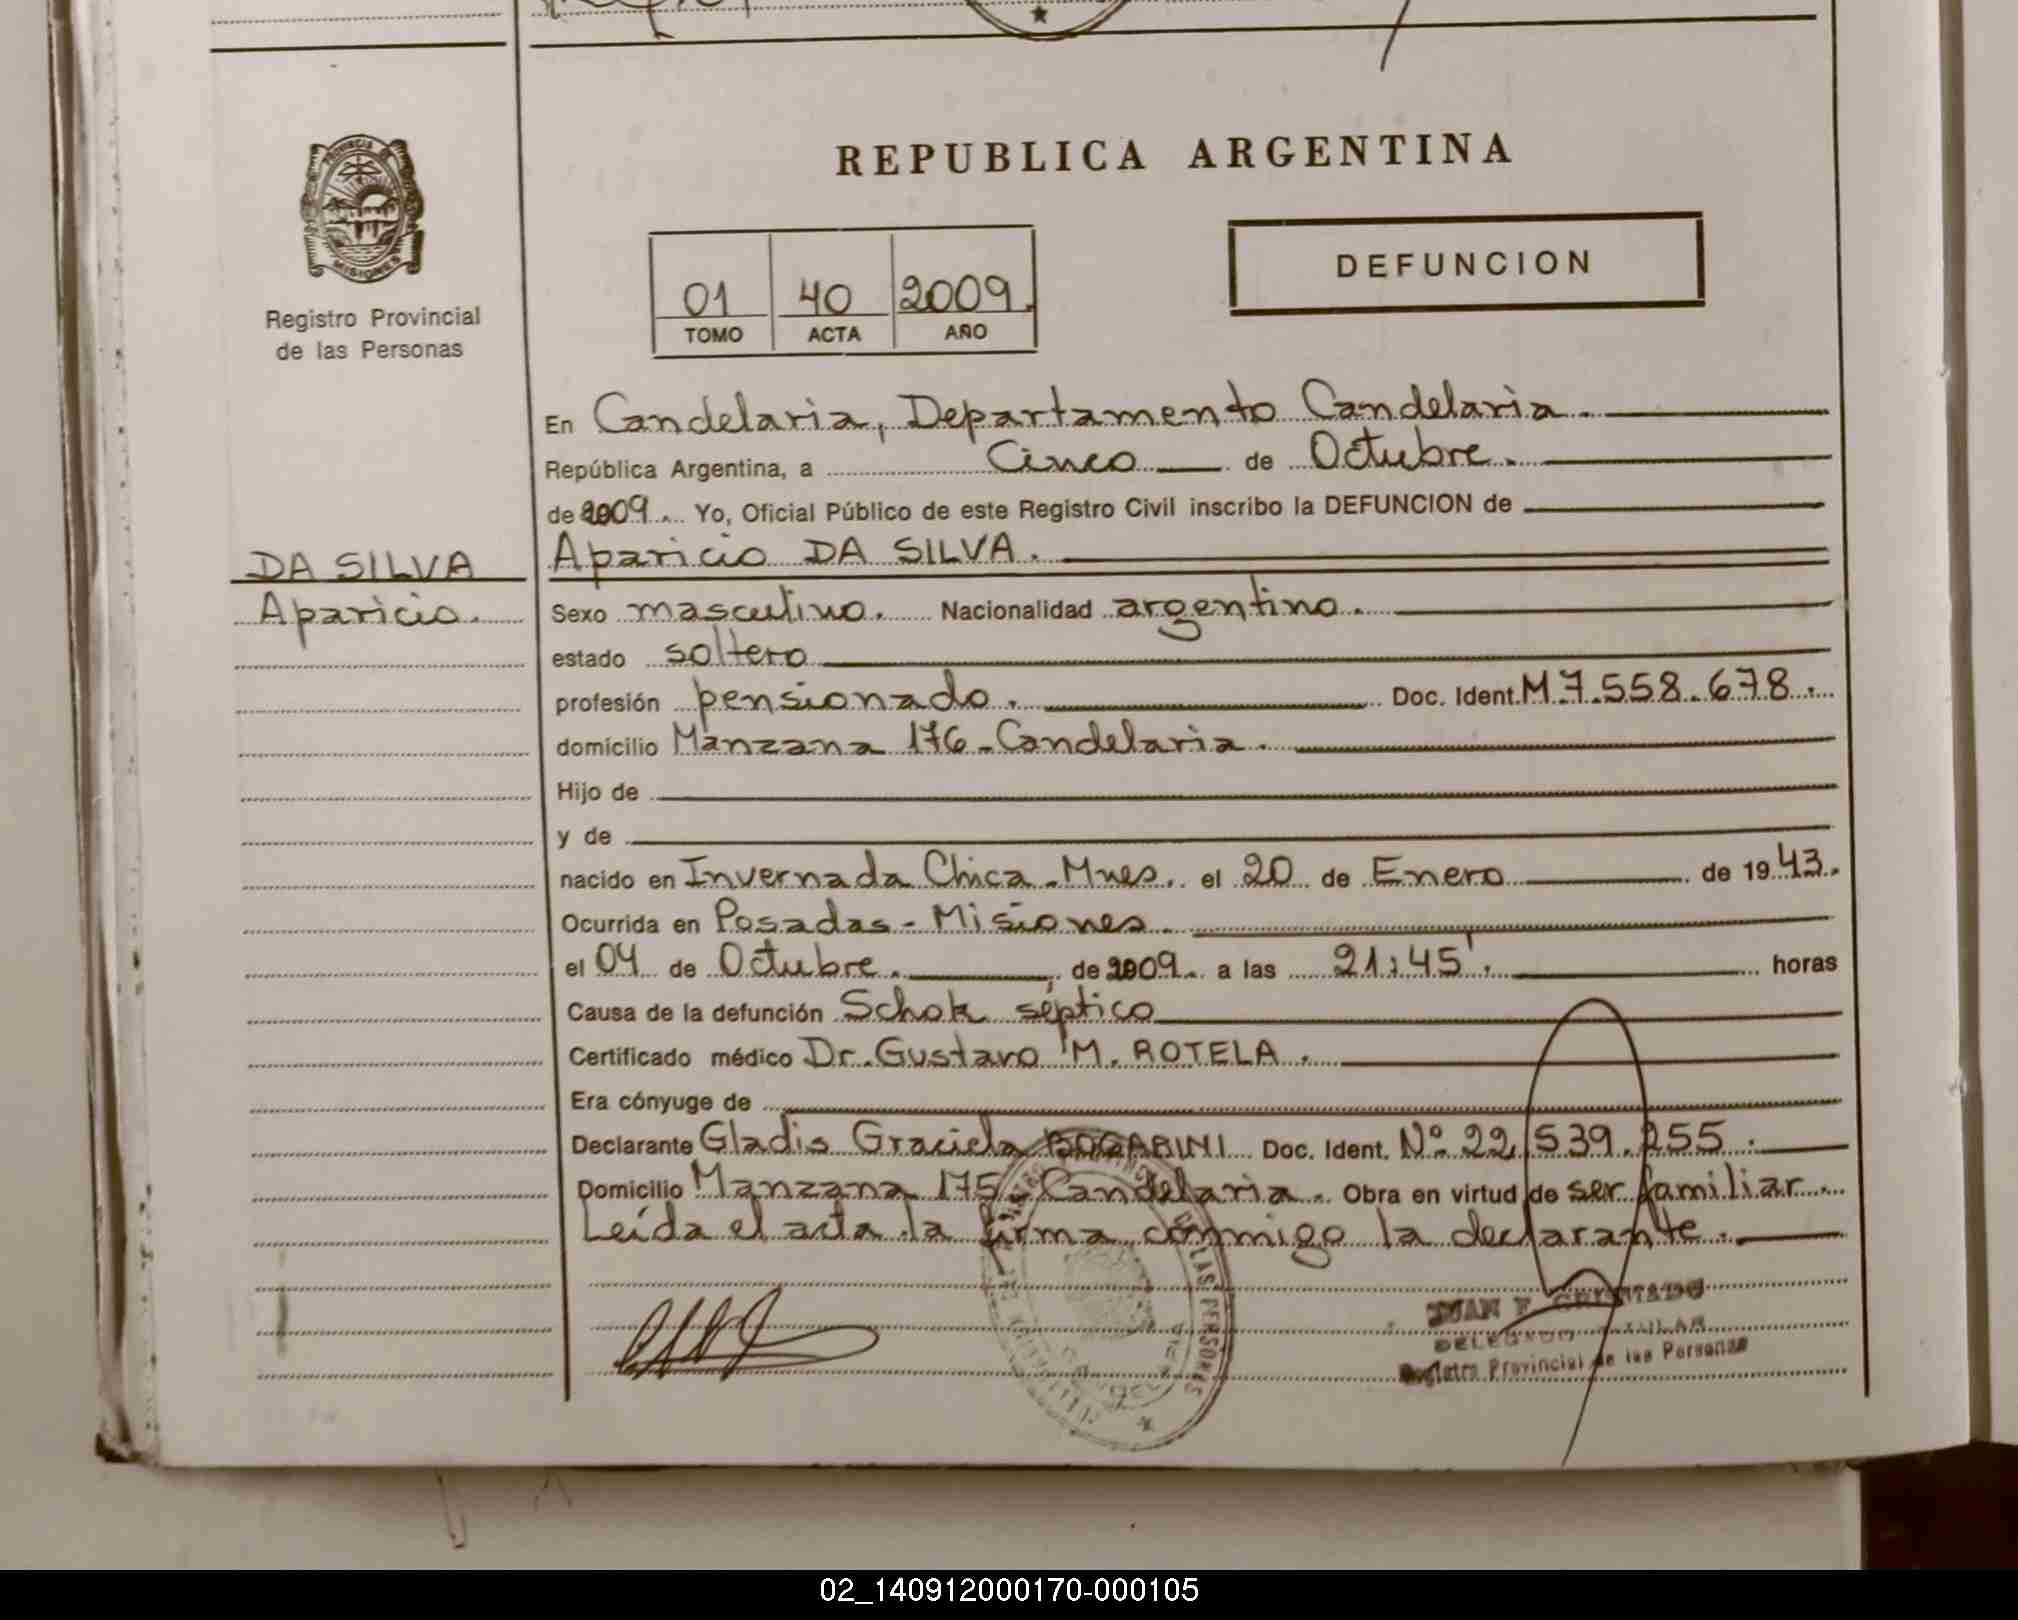 PROVINCIA DE
MISIONES
Registro Provincial
de las Personas
DA SILVA
Aparicio.
REPUBLICA ARGENTINA
01 40 2009.
TOMO ACTA AÑO
DEFUNCION
En Candelaria, Departamento Candelaria.
República Argentina, a Cinco de Octubre.
de 2009. Yo, Oficial Público de este Registro Civil inscribo la DEFUNCION de
Aparicio DA SILVA.
Sexo masculino. Nacionalidad argentino.
estado soltero
profesión pensionado. Doc. Ident. M 7.558.678.
domicilio Manzana 176-Candelaria.
Hijo de
y de
nacido en Invernada Chica-Mnes. el 20 de Enero de 1943.
Ocurrida en Posadas-Misiones.
el 04 de Octubre. de 2009. a las 21:45'. horas
Causa de la defunción Schok séptico
Certificado médico Dr. Gustavo M. ROTELA.
Era cónyuge de
Declarante Gladis Graciela BOGABINI Doc. Ident. Nº 22.539.255.
Domicilio Manzana 175-Candelaria. Obra en virtud de ser familiar.
Leída el acta la firma conmigo la declarante.
LAS PERSONAS
JUAN
DELEGADO TITULAR
Registro Provincial de las Personas
02_140912000170-000105